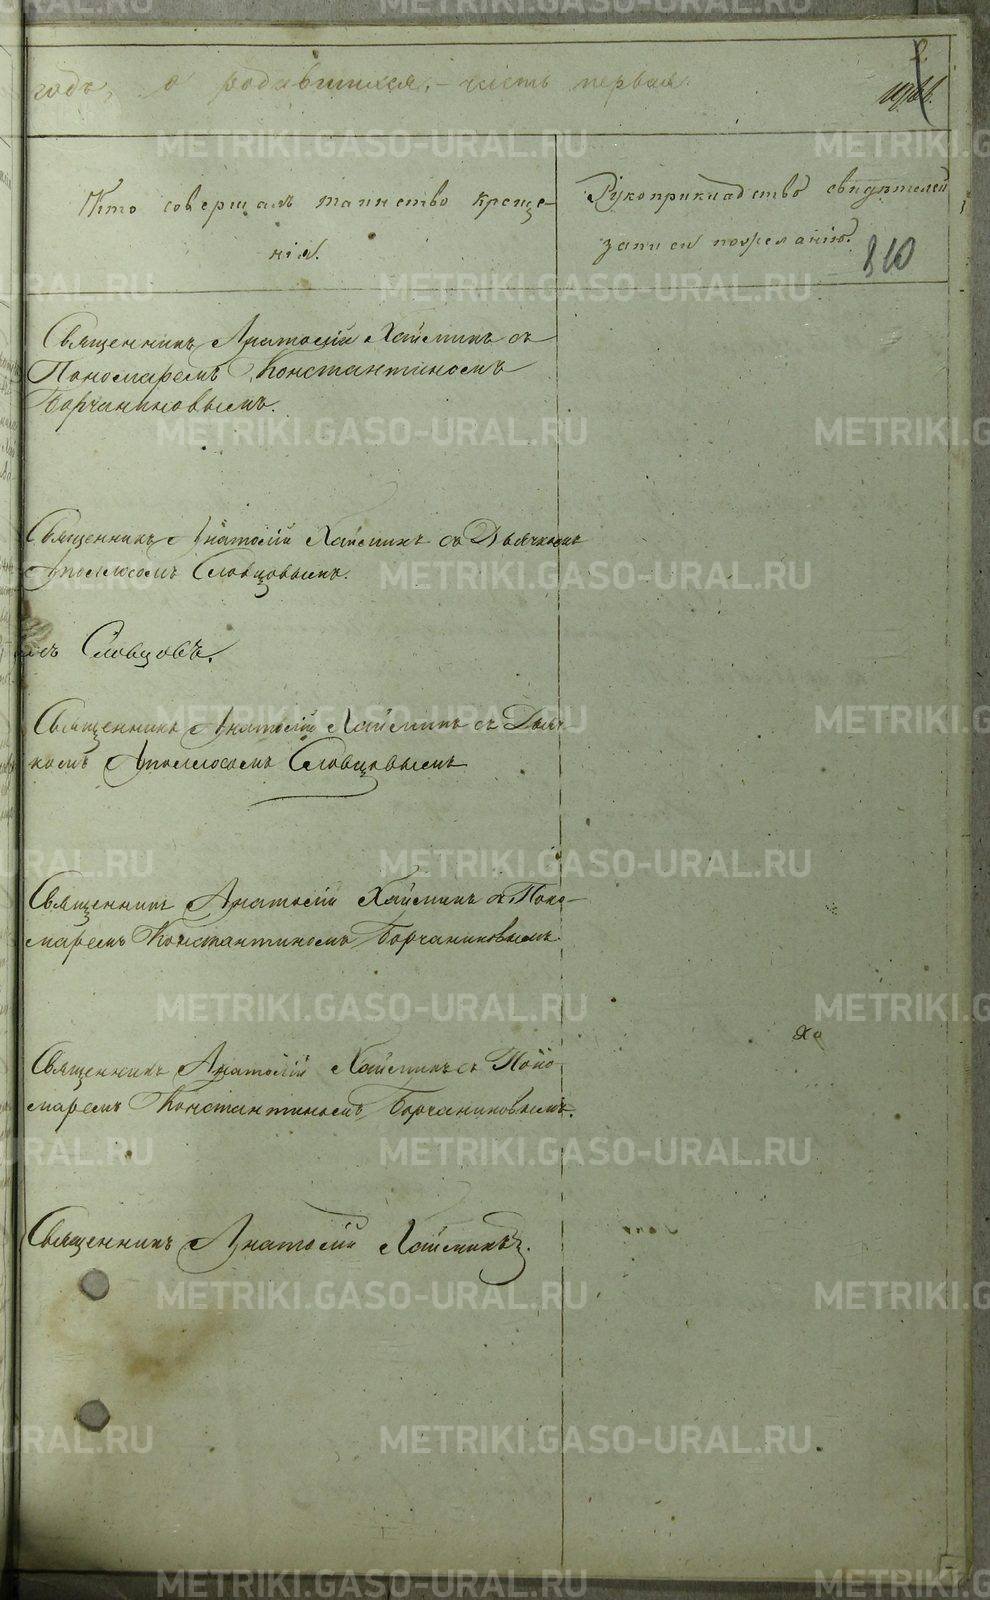 2.
годъ, о родившихся, – часть первая.
Кто совершалъ таинство креще-
нія.
Рукоприкладство свидѣтелей
записи по желанію.
810
Священникъ Анатолій Хайминъ съ
Пономаремъ Константиномъ
Борчаниновымъ.
Священникъ Анатолій Хайминъ съ Дьячкомъ
Аполлосомъ Словцовымъ.
Словцовъ.
Священникъ Анатолій Хайминъ съ Дьяч-
комъ Аполлосомъ Словцовымъ
Священникъ Анатолій Хайминъ съ Поно-
маремъ Константиномъ Борчаниновымъ
Священникъ Анатолій Хайминъ съ Поно
маремъ Константиномъ Борчаниновымъ.
Священникъ Анатолій Хайминъ.
METRIKI.GASO-URAL.RU